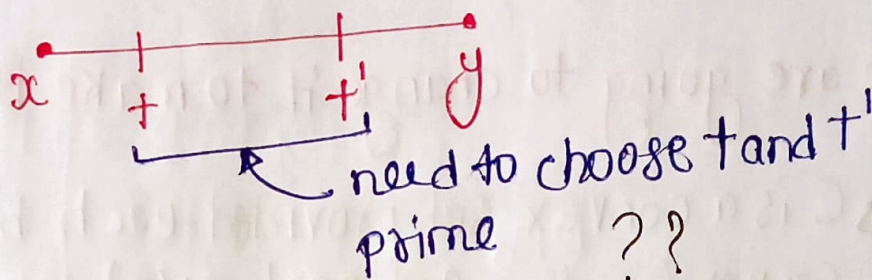 x t t' y
need to choose t and t'
prime ??